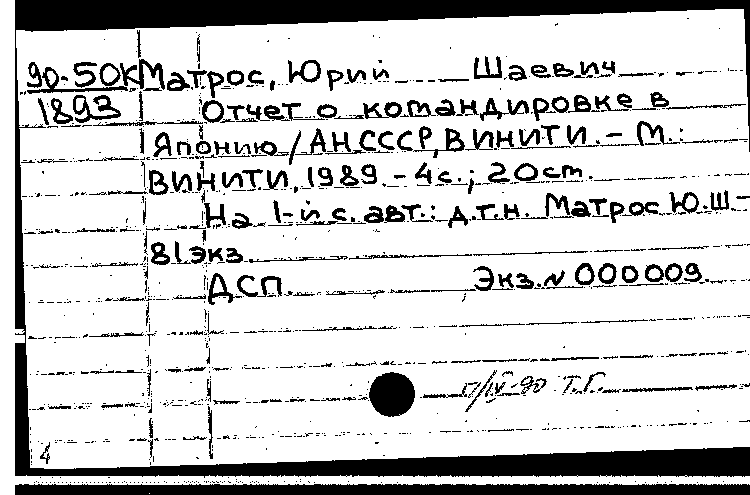 90-50К Матрос, Юрий Шаевич
1893 Отчет о командировке в
Японию / АН СССР, ВИНИТИ. - М.:
ВИНИТИ, 1989. - 4 с.; 20 см.
На 1-й с. авт.: д.т.н. Матрос Ю.Ш -
81 экз.
ДСП. Экз. N 000009.
/IV-90 Т.Г.
4